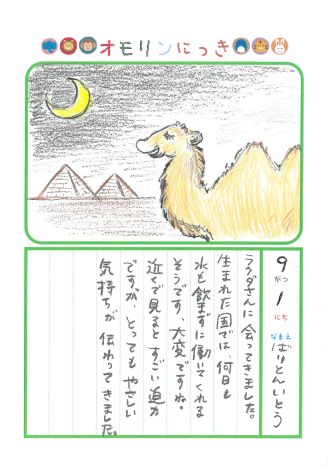 オモリンにっき
9がつ1にち
なまえ ばりとんいとう
ラクダさんに会ってきました。
生まれた国では、何日も
水も飲まずに働いてくれる
そうです、大変ですね。
近くで見るとすごい迫力
ですが、とってもやさしい
気持ちが伝わってきました。